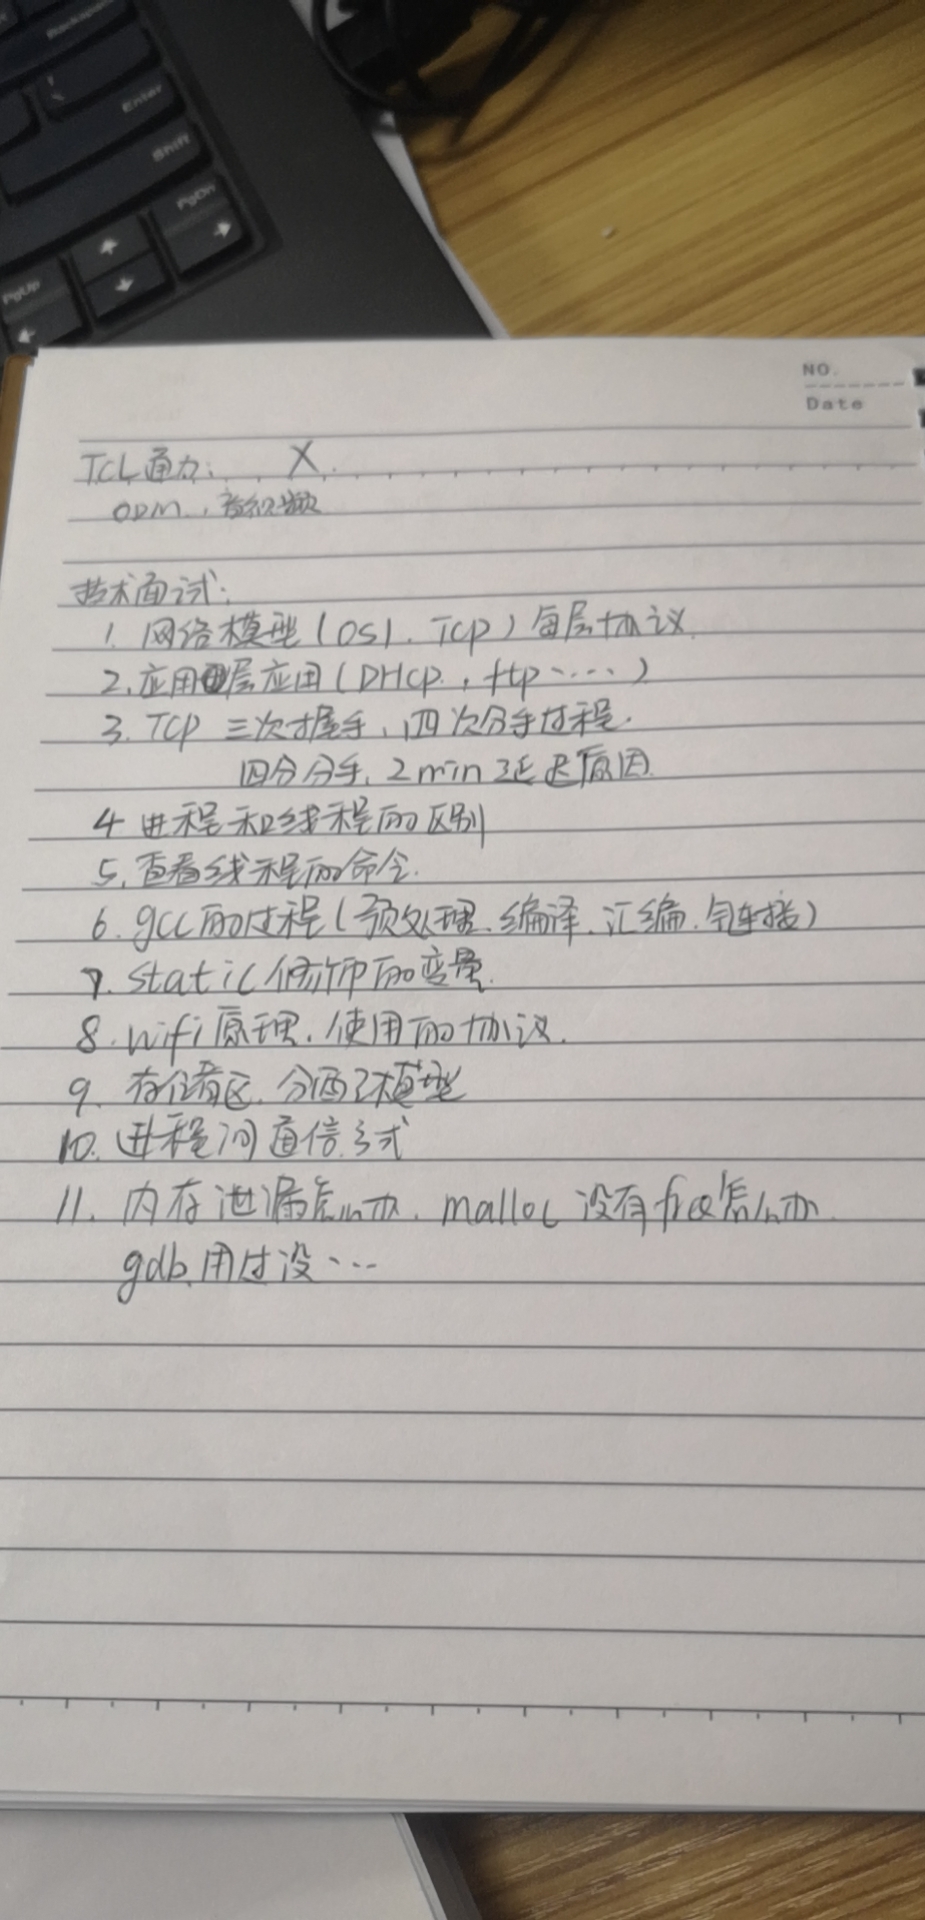 Backspace
Enter
Shift
PgUp
PgDn
NO.
Date
TCL通力: X
ODM、音视频
技术面试:
1. 网络模型(OSI、TCP)每层协议
2. 应用层应用(DHCP、ftp……)
3. TCP 三次握手、四次分手过程.
四分分手、2min延迟原因.
4 进程和线程的区别
5. 查看线程的命令.
6. gcc的过程(预处理、编译、汇编、链接)
7. static修饰的变量.
8. wifi原理、使用的协议.
9. 存储区、分配模型
10. 进程间通信方式
11. 内存泄漏怎么办、malloc 没有free怎么办
gdb 用过没…